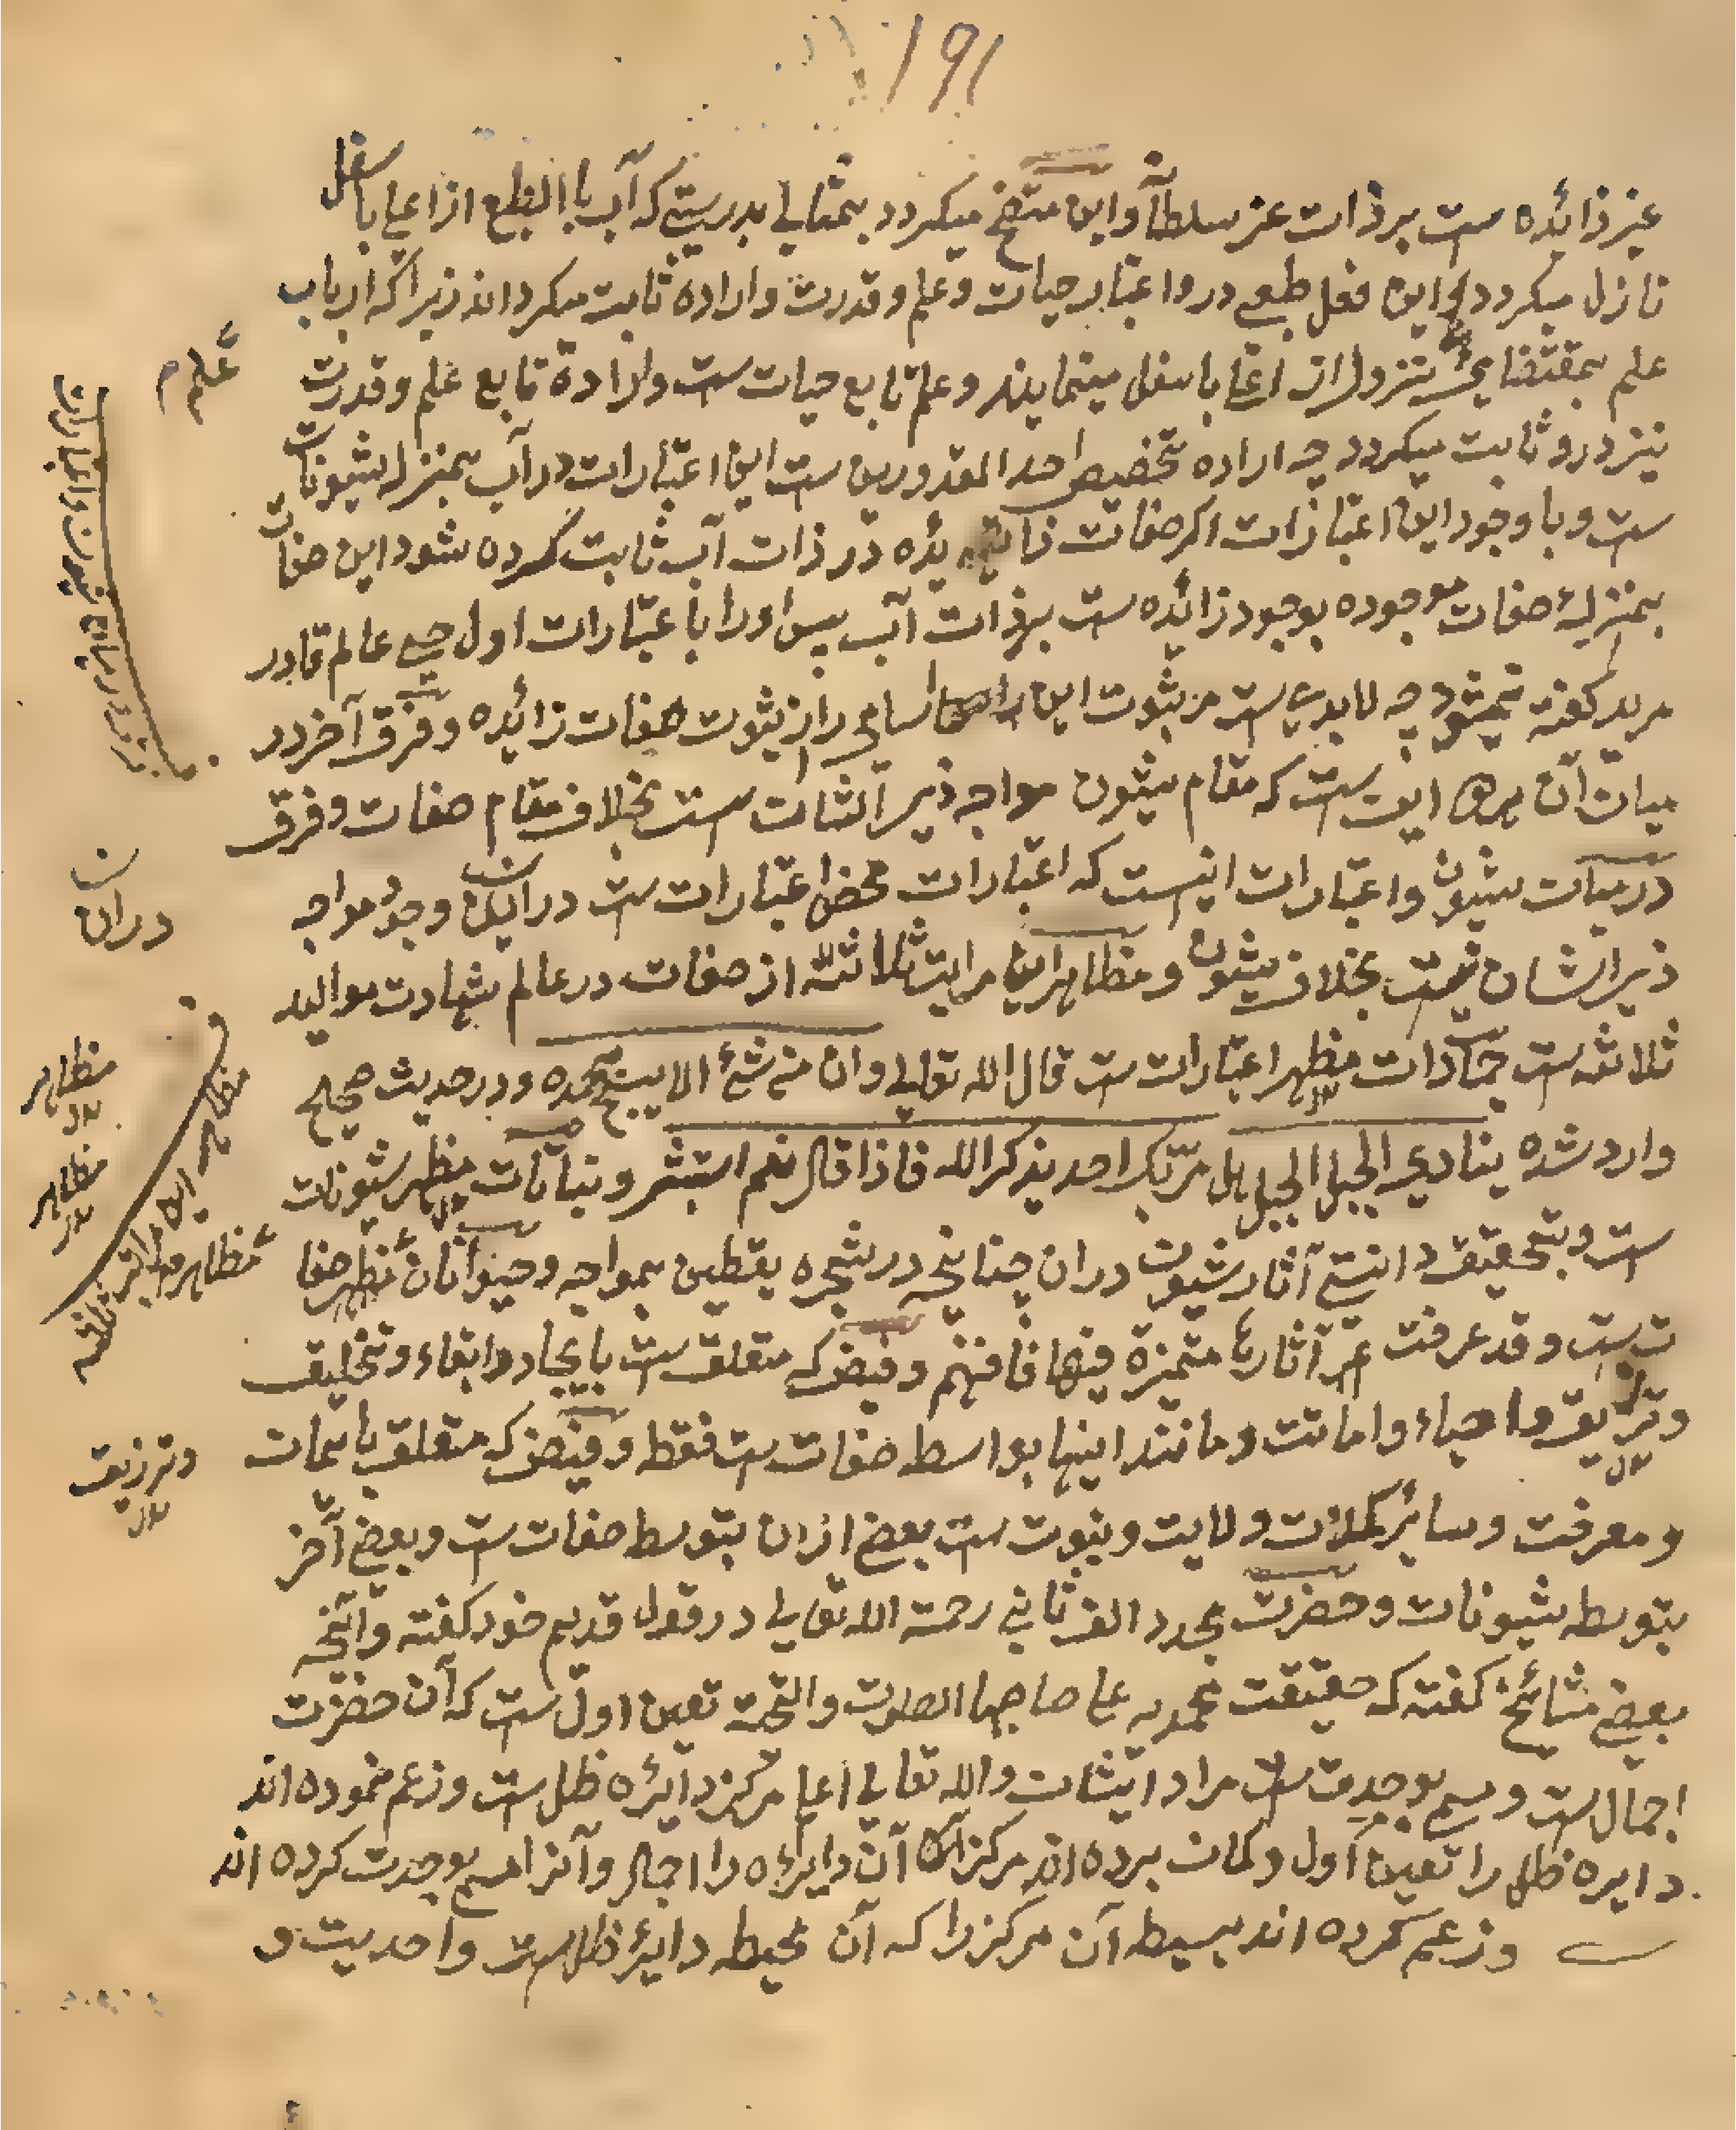 ١٩١
غیر زائده ست بر ذات عز سلطانه و این متضح میکردد بمثالی بدرستیکه آب باالطبع از اعلی باسفل
نازل میکردد و این فعل طبعی درو اعتبار حیات و علم و قدرت و اراده ثابت میکرداند زیراکه ارباب
علم بمقتضای نزول از اعلی باسفل مینمایند و علم تابع حیات ست و اراده تابع علم و قدرت
نیز درو ثابت میکردد چه اراده تخصیص احد المقدورین ست این اعتبارات در آب بمنزله شیونات
ست و با وجود این اعتبارات اکر صفات زائده در ذات آب ثابت کرده شود این صفات
بمنزلهٔ صفات موجوده بوجود زائده ست بر ذات آب پس او را با عتبارات اول حی عالم قادر
مرید کفته نمیشود چه لابدی ست مر ثبوت این اسامی را از ثبوت صفات زائده و فرق آخر در
میان آن هر دو این ست که مقام شیون مواجه ذیر الشان ست بخلاف مقام صفات و فرق
درمیان شیون و اعتبارات اینست که اعتبارات محض اعتبارات ست در آن وجود مواجه
ذیر الشان نیست بخلاف شیون و مظاهر این مراتب ثلاثه از صفات در عالم شهادت موالید
ثلاثه ست جمادات مظهر اعتبارات ست قال الله تعالی وان من شئ الا یسبح بحمده و در حدیث صحیح
وارد شده ینادی الجبل الجبل هل مرّ بک احد یذکر الله فاذا قال نعم استبشر و نباتات مظهر شیونات
ست و بتحقیق دانستی آثار شیون دران چنانچه در شجره یقطین بمواجه و حیوانات مظهر صفا
ت ست و قد عرفت عن آثارها متمیزة فیها فافهم و فیض که متعلق ست بایجاد و ابقاء و تخلیق
و ترزیق و احیاء و اماتت و مانند اینها بواسطه صفات ست فقط و فیض که متعلق بایمان
و معرفت و سایر کمالات ولایت و نبوت ست بعض ازان بتوسط صفات ست و بعض آخر
بتوسط شیونات و حضرت مجدد الف ثانی رحمة الله تعالی در قول قدیم خود کفته و آنچه
بعضی مشائخ کفته که حقیقت محمدیه علی صاحبها الصلوت والتحیة تعین اول ست که آن حضرت
اجمال ست و مسمی بوحدت ست مراد ایشان والله تعالی اعلم مرکز دایره ظل ست و زعم نموده اند
دایره ظل را تعین اول و کمان برده اند مرکز آن دایره را اجمال و آنرا مسمی بوحدت کرده اند
و زعم کرده اند بسیطه آن مرکز را که آن محیط دایرهٔ ظل ست واحدیت و
علم م
دران
مظاهر
مظاهر
مظاهر
و ترزیق